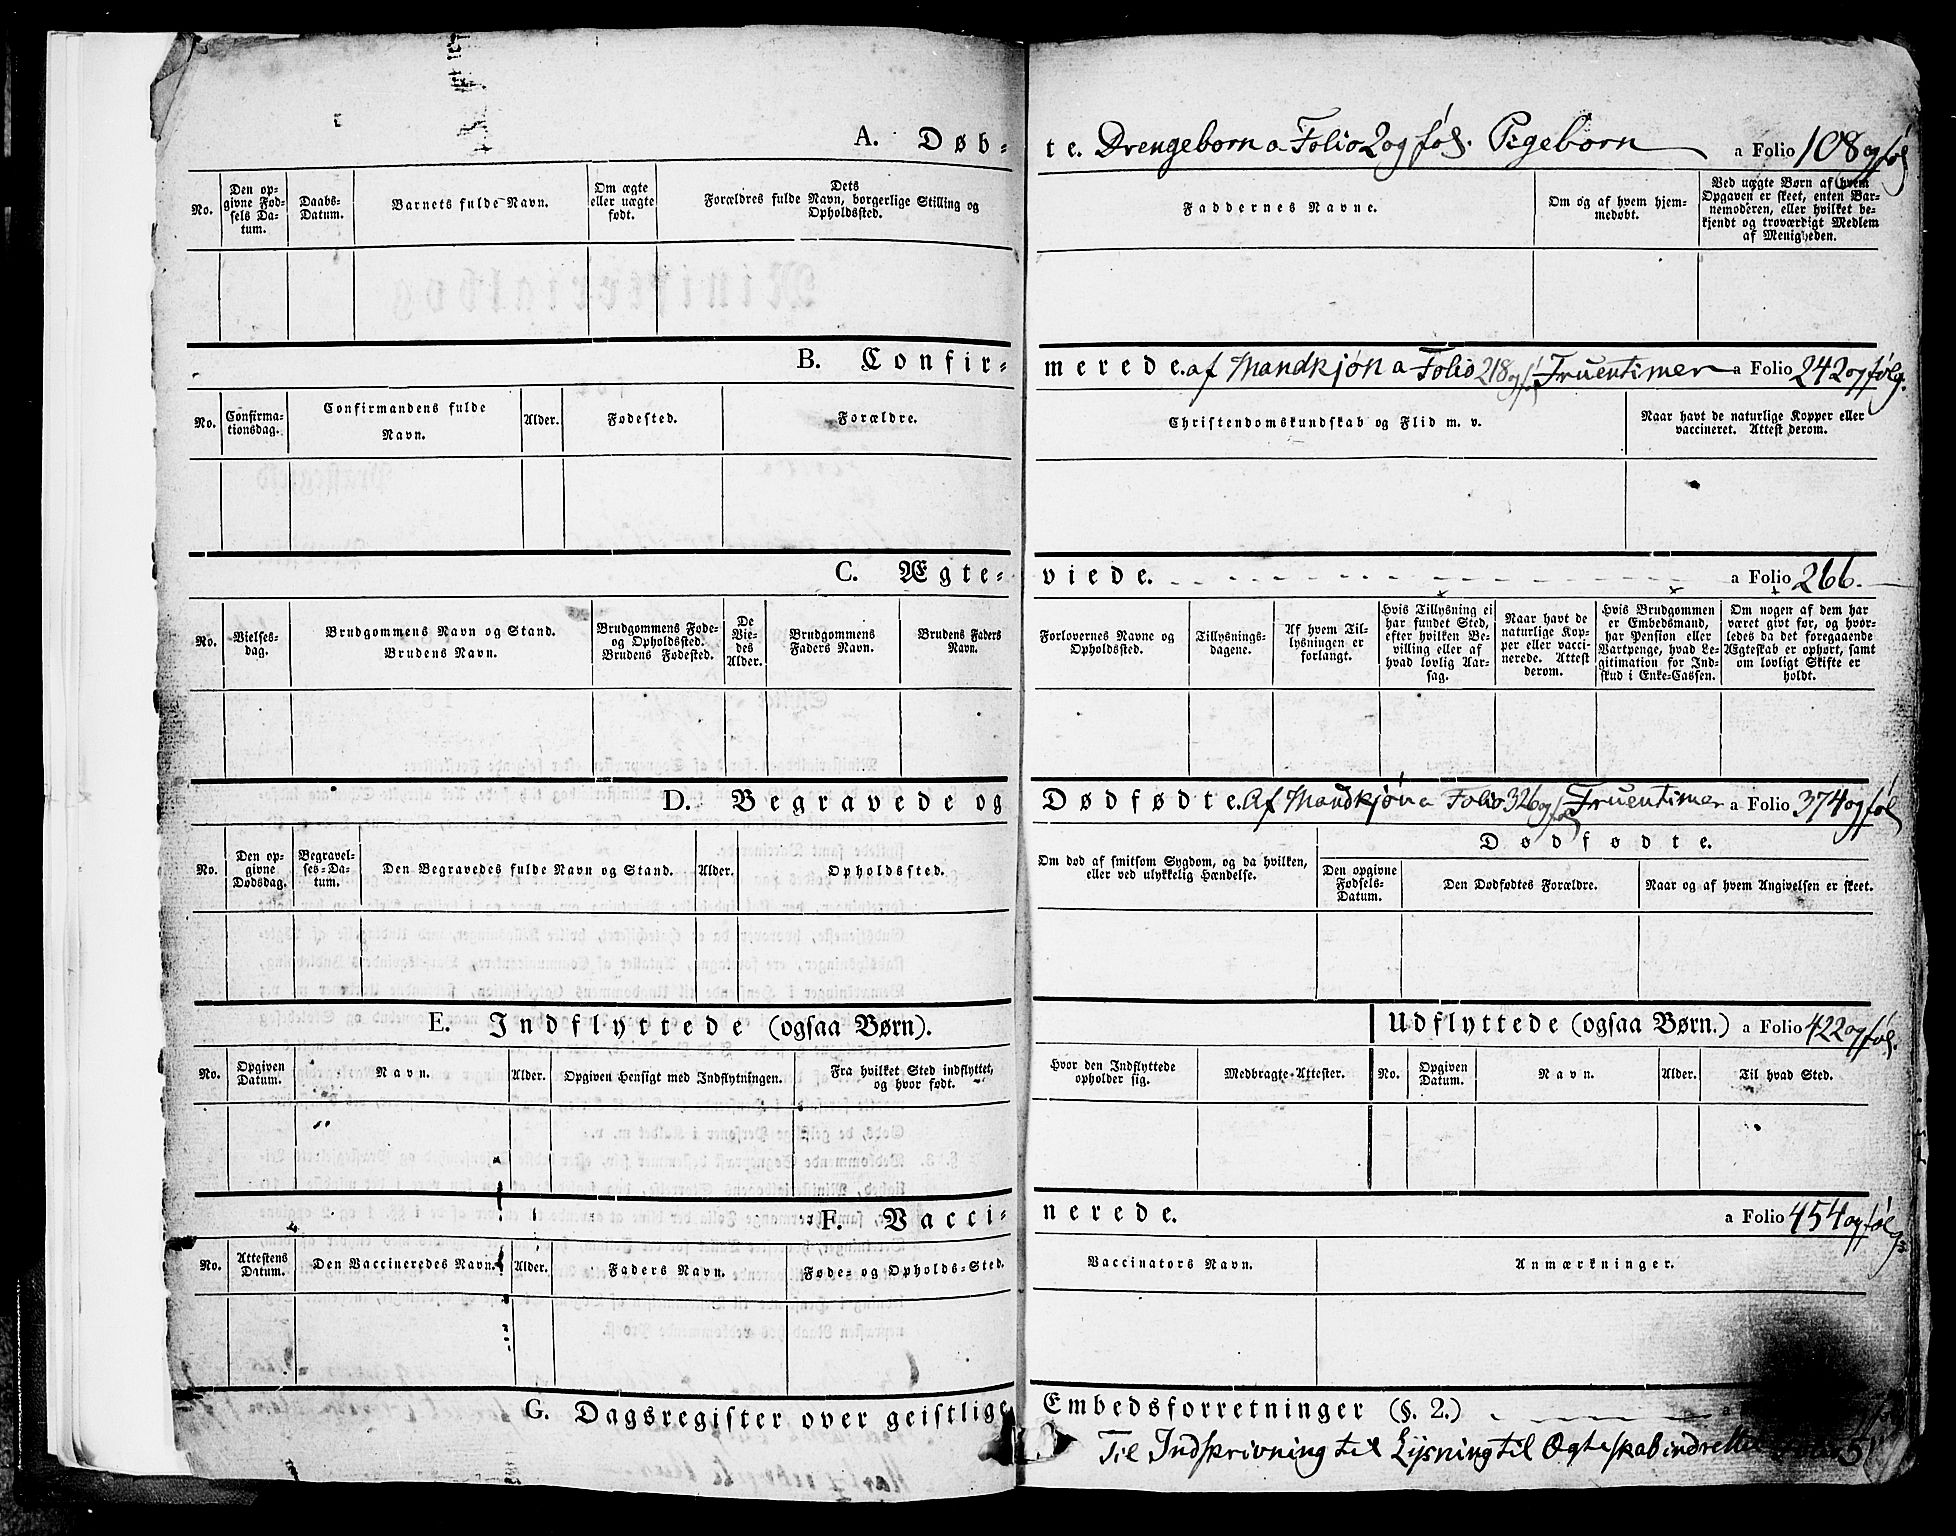 A. Døb-
te. Drengeborn a Folio 2 og føl. Pigeborn a Folio 108 og føl
No.
Den op-
givne Fød-
sels Da-
tum.
Daabs-
Datum.
Barnets fulde Navn.
Om ægte
eller uægte
født.
Dets
Forældres fulde Navn, borgerlige Stilling og
Opholdssted.
Faddernes Navne.
Om og af hvem hjem-
medøbt.
Ved uægte Børn af hvem
Opgaven er skeet, enten Bar-
nemoderen, eller hvilket be-
kjendt og troværdigt Medlem
af Menigheden.
B. Confir-
merede. af Mandkjøn a Folio 218 og føl Fruentimer a Folio 242 og følg.
No.
Confirma-
tionsdag.
Confirmandens fulde
Navn.
Alder.
Fødested.
Forældre.
Christendomskundskab og Flid m. v.
Naar havt de naturlige Kopper eller
vaccineret. Attest derom.
C. Ægte-
viede. a Folio 266.
No.
Vielses-
dag.
Brudgommens Navn og Stand.
Brudens Navn.
Brudgommens Føde-
og Opholdssted.
Brudens Fødested.
De
Vie-
des
Alder.
Brudgommens
Faders Navn.
Brudens Faders
Navn.
Forlovernes Navne og
Opholdssted.
Tillysnings-
dagene.
Af hvem Til-
lysningen er
forlangt.
Hvis Tillysning ei
har fundet Sted,
efter hvilken Be-
villing eller af
hvad lovlig Aar-
sag.
Naar havt de
naturlige Kop-
per eller vacci-
nerede. Attest
derom.
Hvis Brudgommen
er Embedsmand,
har Pension eller
Vartpenge, hvad Le-
gitimation for Ind-
skud i Enke-Cassen.
Om nogen af dem har
været gift før, og hvor-
ledes da det foregaaende
Ægteskab er ophørt, samt
om lovligt Skifte er
holdt.
D. Begravede og
Dødfødte. Af Mandkjøn a Folio 326 og føl Fruentimer a Folio 374 og føl
No.
Den op-
givne
Dødsdag.
Begravel-
ses-Da-
tum.
Den Begravedes fulde Navn og Stand.
Alder.
Opholdssted.
Om død af smitsom Sygdom, og da hvilken,
eller ved ulykkelig Hændelse.
Dødfødte.
Den opgivne
Fødsels-
Datum.
Den Dødfødtes Forældre.
Naar og af hvem Angivelsen er skeet.
E. Indflyttede (ogsaa Børn).
Udflyttede (ogsaa Børn.) a Folio 422 og føl.
No.
Opgiven
Datum.
Navn.
Alder.
Opgiven Hensigt med Indflytningen.
Fra hvilket Sted indflyttet,
og hvor født.
Hvor den Indflyttede
opholder sig.
Medbragte Attester.
No.
Opgiven
Datum.
Navn.
Alder.
Til hvad Sted.
F. Vacci-
nerede. a Folio 454 og følg:
No.
Attestens
Datum.
Den Vaccineredes Navn.
Alder.
Faders Navn.
Føde- og Opholds-Sted.
Vaccinators Navn.
Anmærkninger.
G. Dagsregister over geistlige
Embedsforretninger (§. 2.) a
Til Indskrivning til Lysning til Ægteskab indrettet